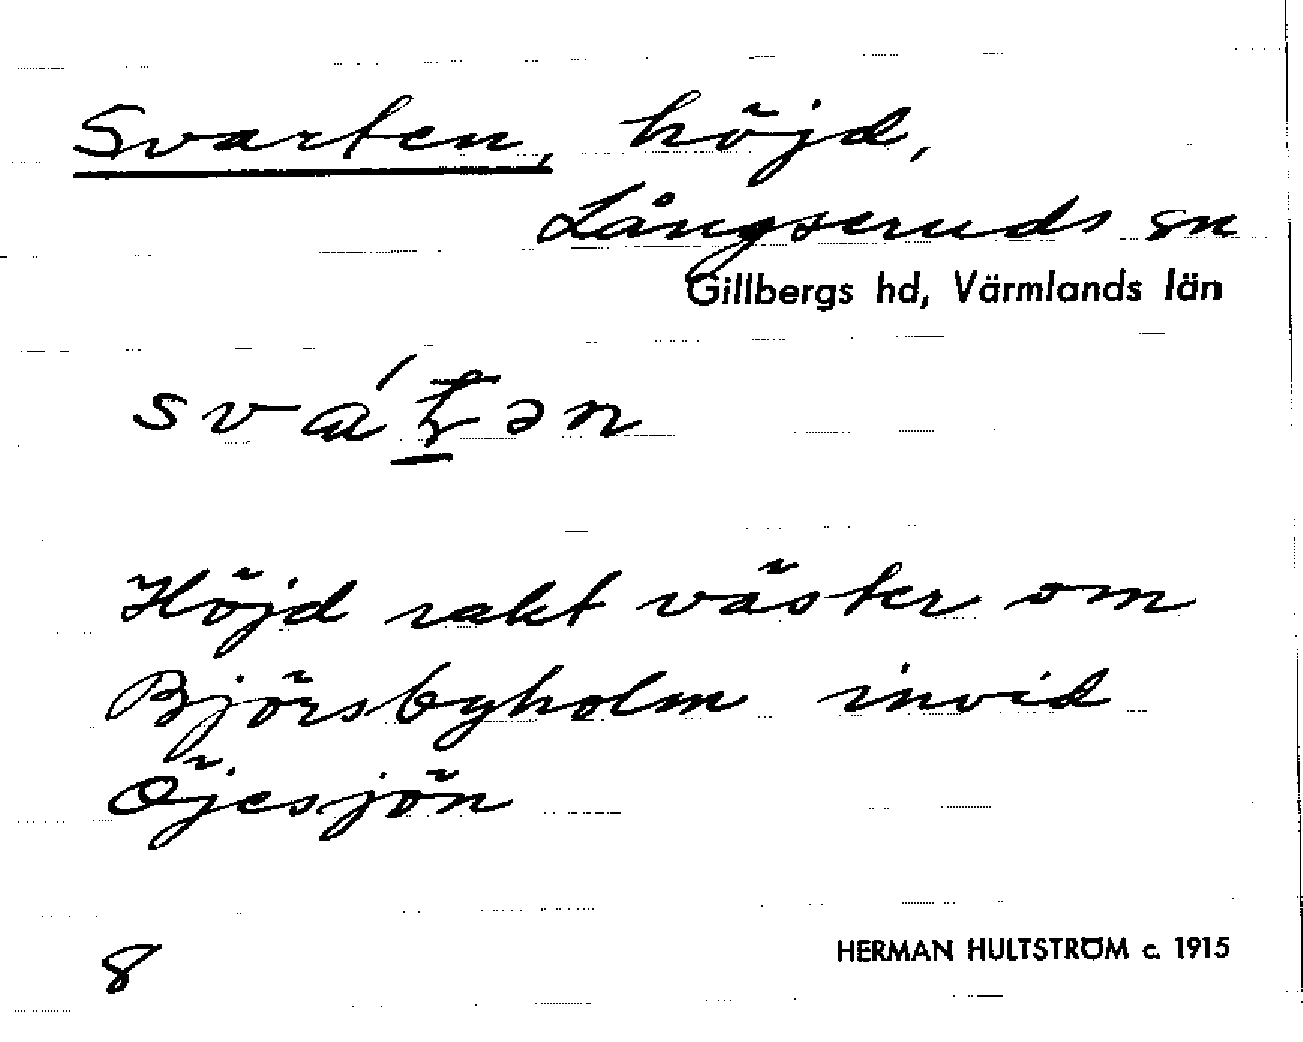 Svarten, höjd,
Långseruds sn
Gillbergs hd, Värmlands län
Höjd rakt väster om
Björsbyholm invid
Öjesjön
8
HERMAN HULTSTRÖM c. 1915